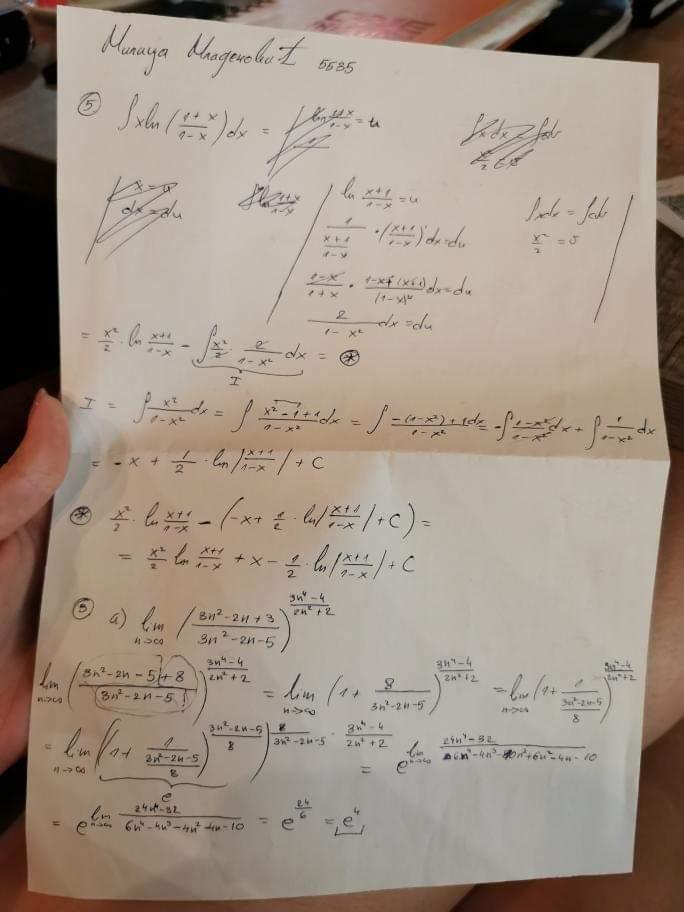 5535
⑤ ∫xln(1+x/1-x)dx =
ln x+1/1-x = u    ∫xdx = ∫dv
1/(x+1/1-x) · (x+1/1-x)' dx = du    x²/2 = v
1-x/1+x · 1-x+(x+1)/(1-x)² dx = du
2/1-x² dx = du
= x²/2 · ln x+1/1-x - ∫x²/2 · 2/1-x² dx = ⊛
I
I = ∫x²/1-x² dx = ∫ x²-1+1/1-x² dx = ∫ -(1-x²)+1dx/1-x² = -∫1-x²/1-x² dx + ∫ 1/1-x² dx
= -x + 1/2 · ln|x+1/1-x| + C
⊛ x²/2 · ln x+1/1-x - (-x+ 1/2 · ln|x+1/1-x| + C) =
= x²/2 ln x+1/1-x + x - 1/2 · ln|x+1/1-x| + C
③ a) lim n→∞ (3n²-2n+3/3n²-2n-5)^(3n⁴-4/2n²+2)
lim n→∞ (3n²-2n-5+8/3n²-2n-5)^(3n⁴-4/2n²+2) = lim n→∞ (1+ 8/3n²-2n-5)^(3n⁴-4/2n²+2) = lim n→∞ (1+ 1/(3n²-2n-5/8))^(3n⁴-4/2n²+2)
= lim n→∞ ((1+ 1/(3n²-2n-5/8))^(3n²-2n-5/8))^(8/3n²-2n-5 · 3n⁴-4/2n²+2) = e^(lim n→∞ 24n⁴-32/6n⁴-4n³-10n²+6n²-4n-10)
e
= e^(lim n→∞ 24n⁴-32/6n⁴-4n³-4n²-4n-10) = e^(24/6) = e⁴